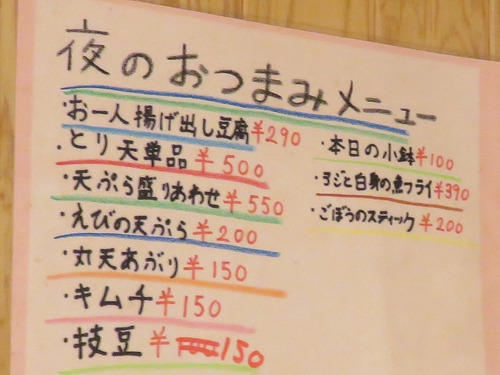 夜のおつまみメニュー
・お一人揚げ出し豆腐¥290
・とり天単品¥500
・天ぷら盛りあわせ¥550
・えびの天ぷら¥200
・丸天あぶり¥150
・キムチ¥150
・枝豆¥100 150
・本日の小鉢¥100
・ヨジと白身の魚フライ¥390
・ごぼうのスティック¥200